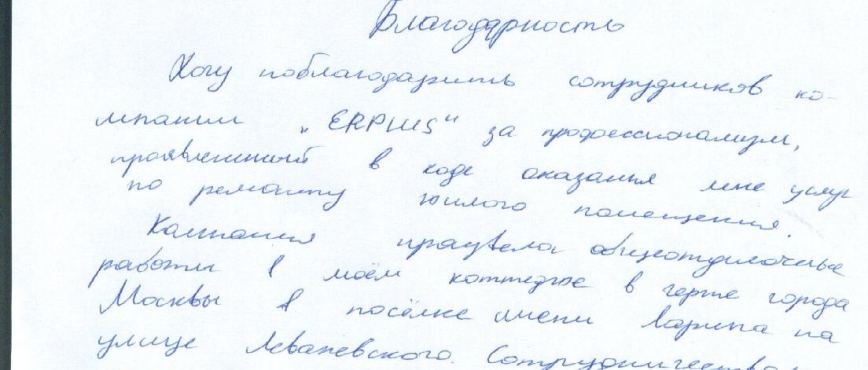 Благодарность
Хочу поблагодарить сотрудников ко-
мпании „ERPLUS“ за профессионализм,
проявленный в ходе оказания мне услуг
по ремонту жилого помещения.
Компания провела общеотделочные
работы в моём коттедже в черте города
Москвы в посёлке имени Ларина на
улице Леваневского. Сотрудничество